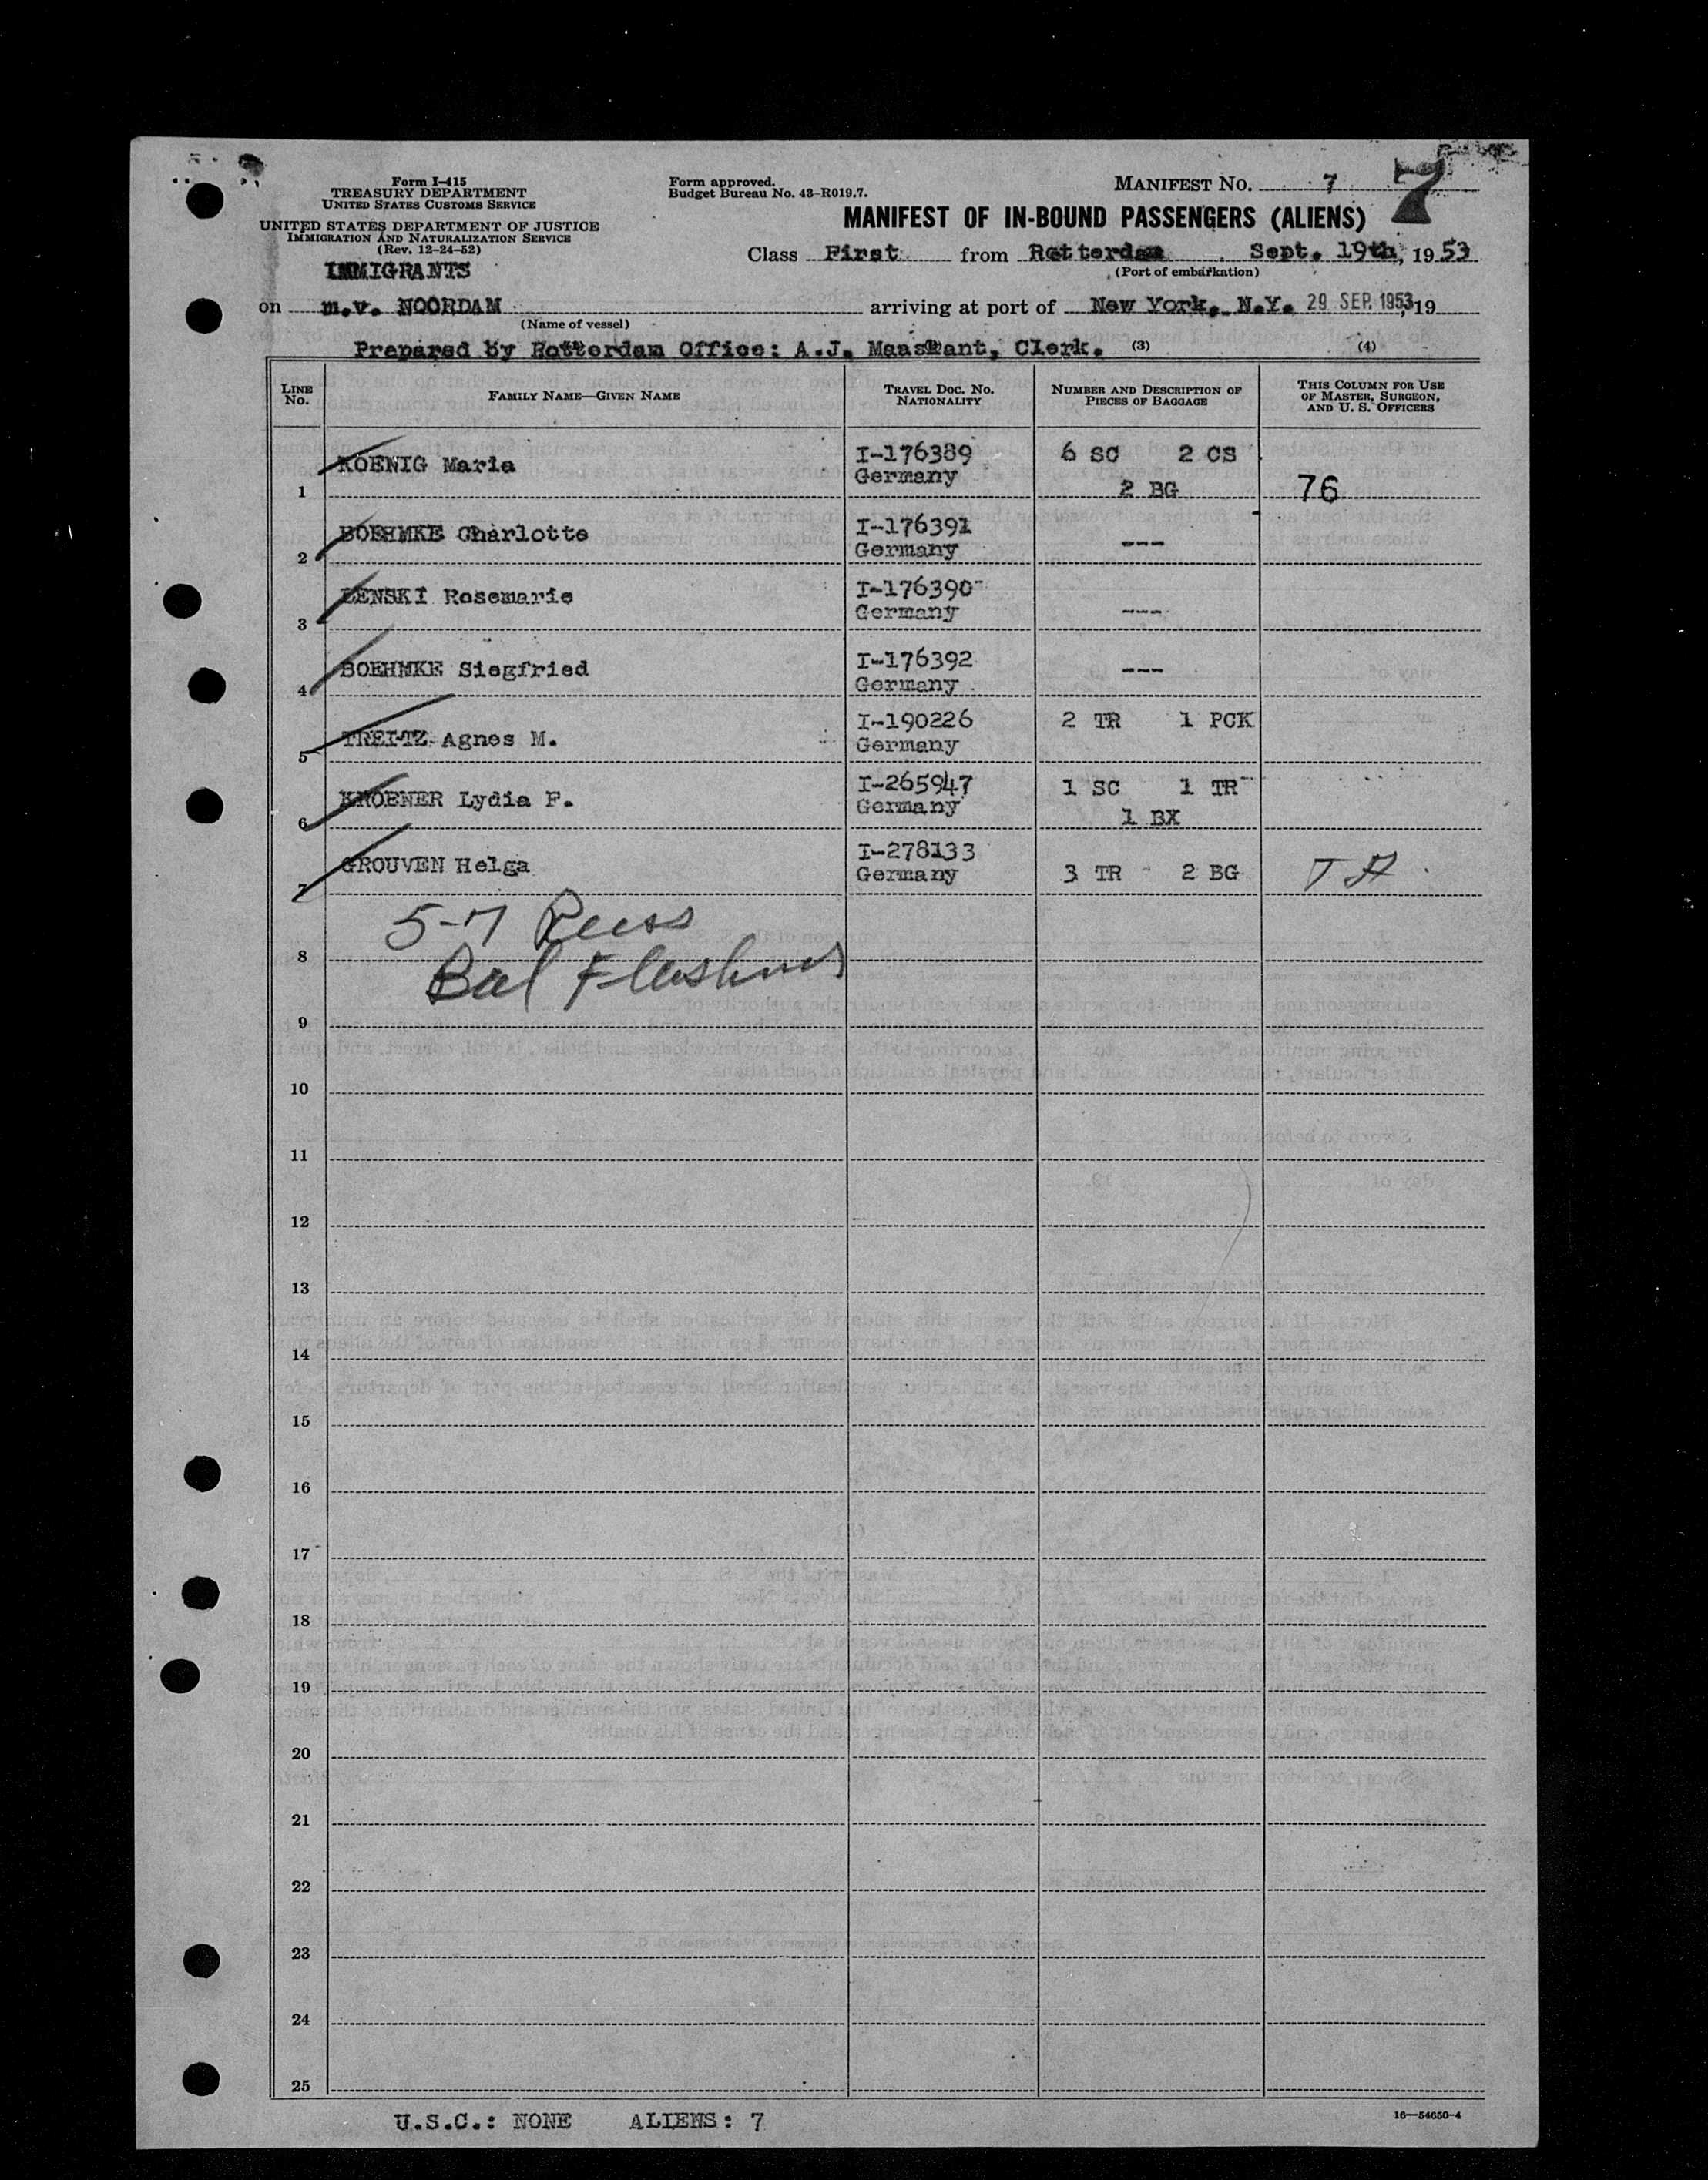 Form I-415
TREASURY DEPARTMENT
UNITED STATES CUSTOMS SERVICE
UNITED STATES DEPARTMENT OF JUSTICE
IMMIGRATION AND NATURALIZATION SERVICE
(Rev. 12-24-52)
IMMIGRANTS
Form approved.
Budget Bureau No. 43-R019.7.
MANIFEST NO. 7
7
MANIFEST OF IN-BOUND PASSENGERS (ALIENS)
Class First from Rotterdam Sept. 19th, 1953
(Port of embarkation)
on m.v. NOORDAM arriving at port of New York, N.Y. 29 SEP. 1953, 19
(Name of vessel)
Prepared by Rotterdam Office: A.J. Maaskant, Clerk. (3) (4)
LINE NO. FAMILY NAME—GIVEN NAME TRAVEL DOC. NO. NATIONALITY NUMBER AND DESCRIPTION OF PIECES OF BAGGAGE THIS COLUMN FOR USE OF MASTER, SURGEON, AND U. S. OFFICERS
1 KOENIG Maria I-176389 Germany 6 SC 2 CS 2 BG 76
2 BOEHMKE Charlotte I-176391 Germany ---
3 LENSKI Rosemarie I-176390 Germany ---
4 BOEHMKE Siegfried I-176392 Germany ---
5 TREITZ Agnes M. I-190226 Germany 2 TR 1 PCK
6 KROENER Lydia F. I-265947 Germany 1 SC 1 TR 1 BX
7 GROUVEN Helga I-278133 Germany 3 TR 2 BG
5-7
8
Bal
9
10
11
12
13
14
15
16
17
18
19
20
21
22
23
24
25
U.S.C.: NONE ALIENS: 7
16—54650-4